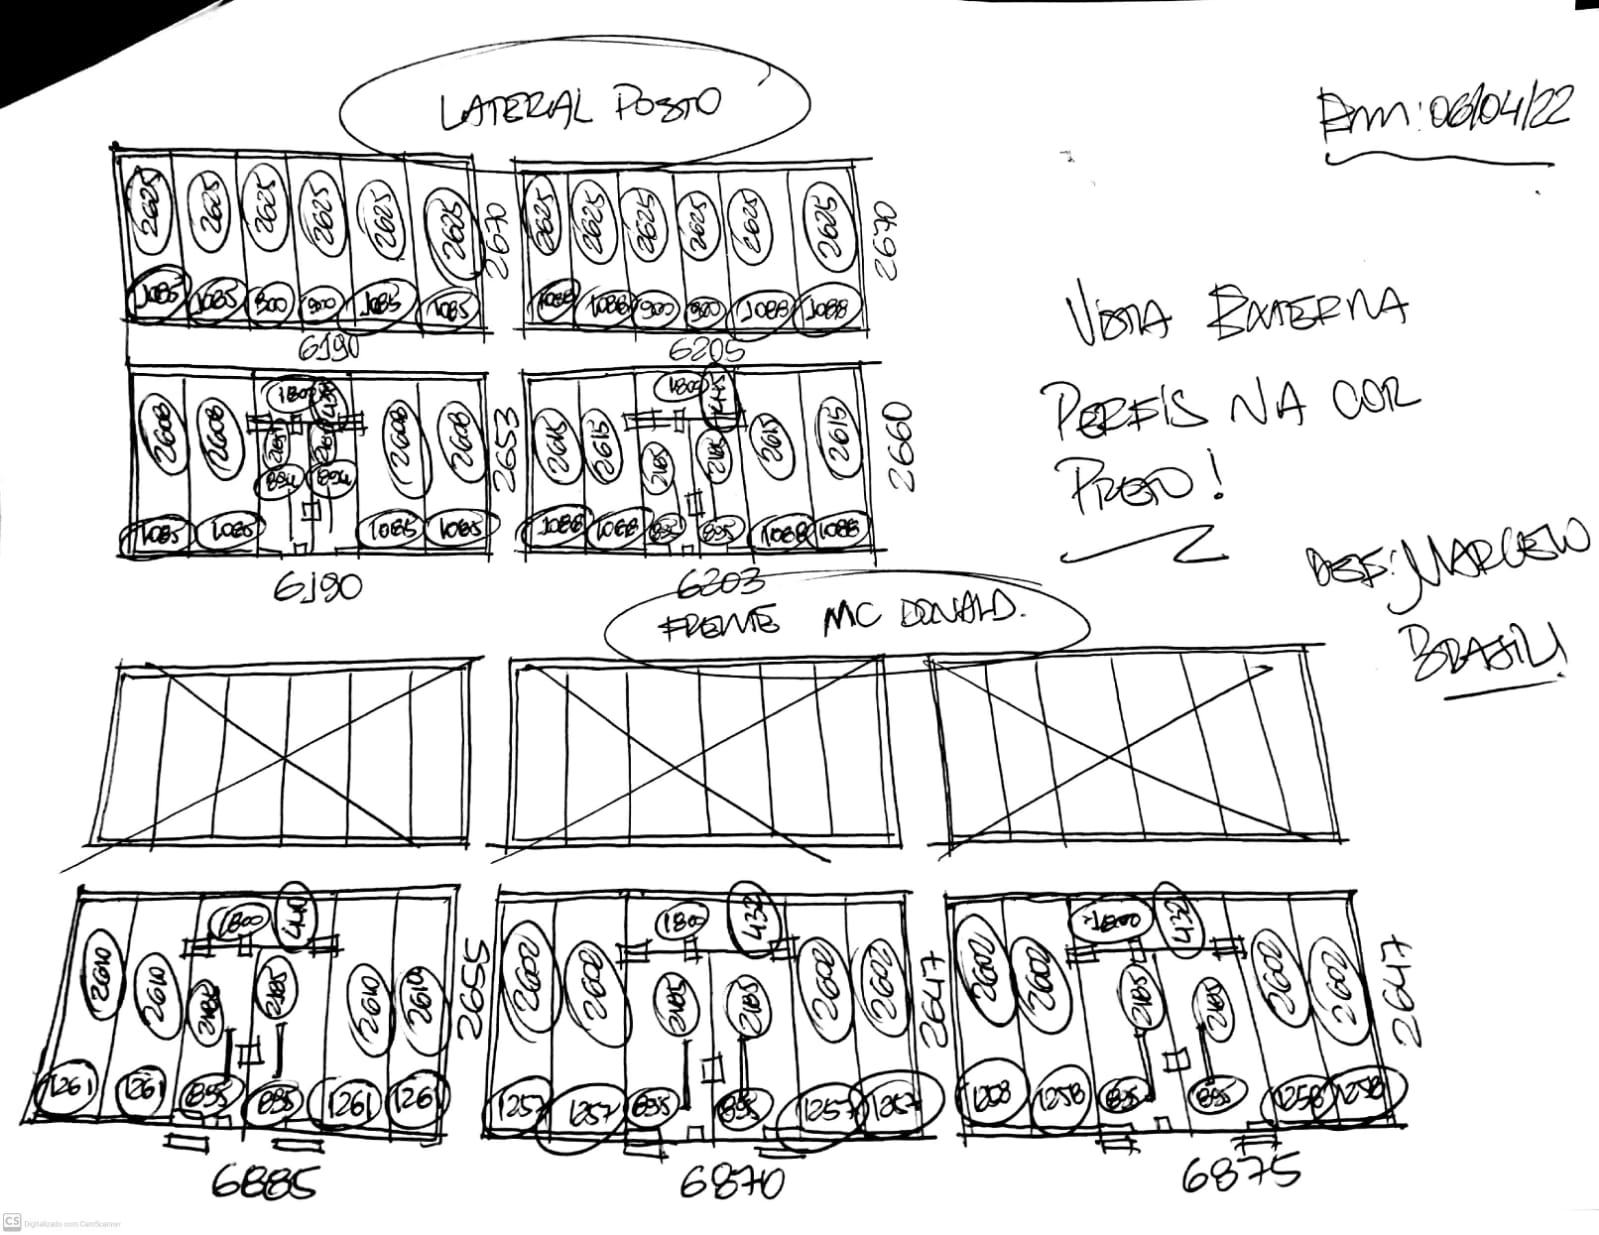 LATERIAL POSTO
Em: 06/04/22
2625 2625 2625 2625 2625 2625 2670
1085 1085 900 900 1085 1085
6190
2625 2625 2625 2625 2625 2625 2670
1088 1088 900 900 1088 1088
6205
VISTA EXTERNA
PERFIS NA COR
PRETO!
1800
2608 2608 2185 2185 2608 2608 2653
894 894
1085 1085 1085 1085
6190
1800
2615 2615 2185 2185 2615 2615 2660
1088 1088 895 895 1088 1088
6203
MARCELO
BRASIL
FRENTE MC DONALD.
1800 440
2610 2610 2185 2185 2610 2610 2655
1261 1261 895 895 1261 1261
6885
1800 432
2602 2602 2185 2185 2602 2602 2647
1257 1257 895 895 1257 1257
6870
1800 432
2602 2602 2185 2185 2602 2602 2647
1258 1258 895 895 1258 1258
6875
CS Digitalizado com CamScanner